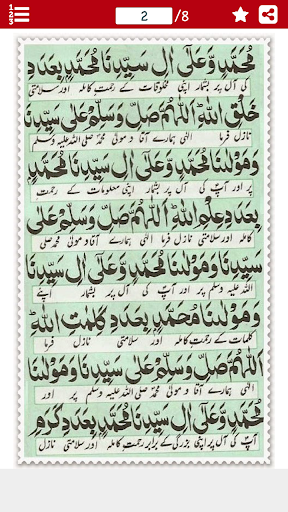 2 /8
مُحَمَّدٍ وَّعَلٰٓى اٰلِ سَيِّدِنَا مُحَمَّدٍۢ بِعَدَدِ
کی آل پر بشمار اپنی مخلوقات کے رحمت کاملہ اور سلامتی
خَلْقِ اللّٰهِ اَللّٰهُمَّ صَلِّ وَسَلِّمْ عَلٰى سَيِّدِنَا
نازل فرما الٰہی ہمارے آقا و مولیٰ محمد صلی اللہ علیہ وسلم
وَمَوْلٰنَا مُحَمَّدٍ وَّعَلٰٓى اٰلِ سَيِّدِنَا مُحَمَّدٍۢ
پر اور آپ کی آل پر بشمار اپنی معلومات کے رحمت
بِعَدَدِ عِلْمِ اللّٰهِ اَللّٰهُمَّ صَلِّ وَسَلِّمْ عَلٰى
کاملہ اور سلامتی نازل فرما الٰہی ہمارے آقا و مولیٰ محمد صلی
سَيِّدِنَا وَمَوْلٰنَا مُحَمَّدٍ وَّعَلٰٓى اٰلِ سَيِّدِنَا
اللہ علیہ وسلم پر اور آپ کی آل پر بشمار اپنے
وَمَوْلٰنَا مُحَمَّدٍۢ بِعَدَدِ كَلِمٰتِ اللّٰهِ
کلمات کے رحمت کاملہ اور سلامتی نازل فرما
اَللّٰهُمَّ صَلِّ وَسَلِّمْ عَلٰى سَيِّدِنَا وَمَوْلٰنَا
الٰہی ہمارے آقا و مولیٰ محمد صلی اللہ علیہ وسلم پر اور
مُحَمَّدٍ وَّعَلٰٓى اٰلِ سَيِّدِنَا مُحَمَّدٍۢ بِعَدَدِ كَرَمِ
آپ کی آل پر اپنی بزرگی کے برابر رحمت کاملہ اور سلامتی نازل